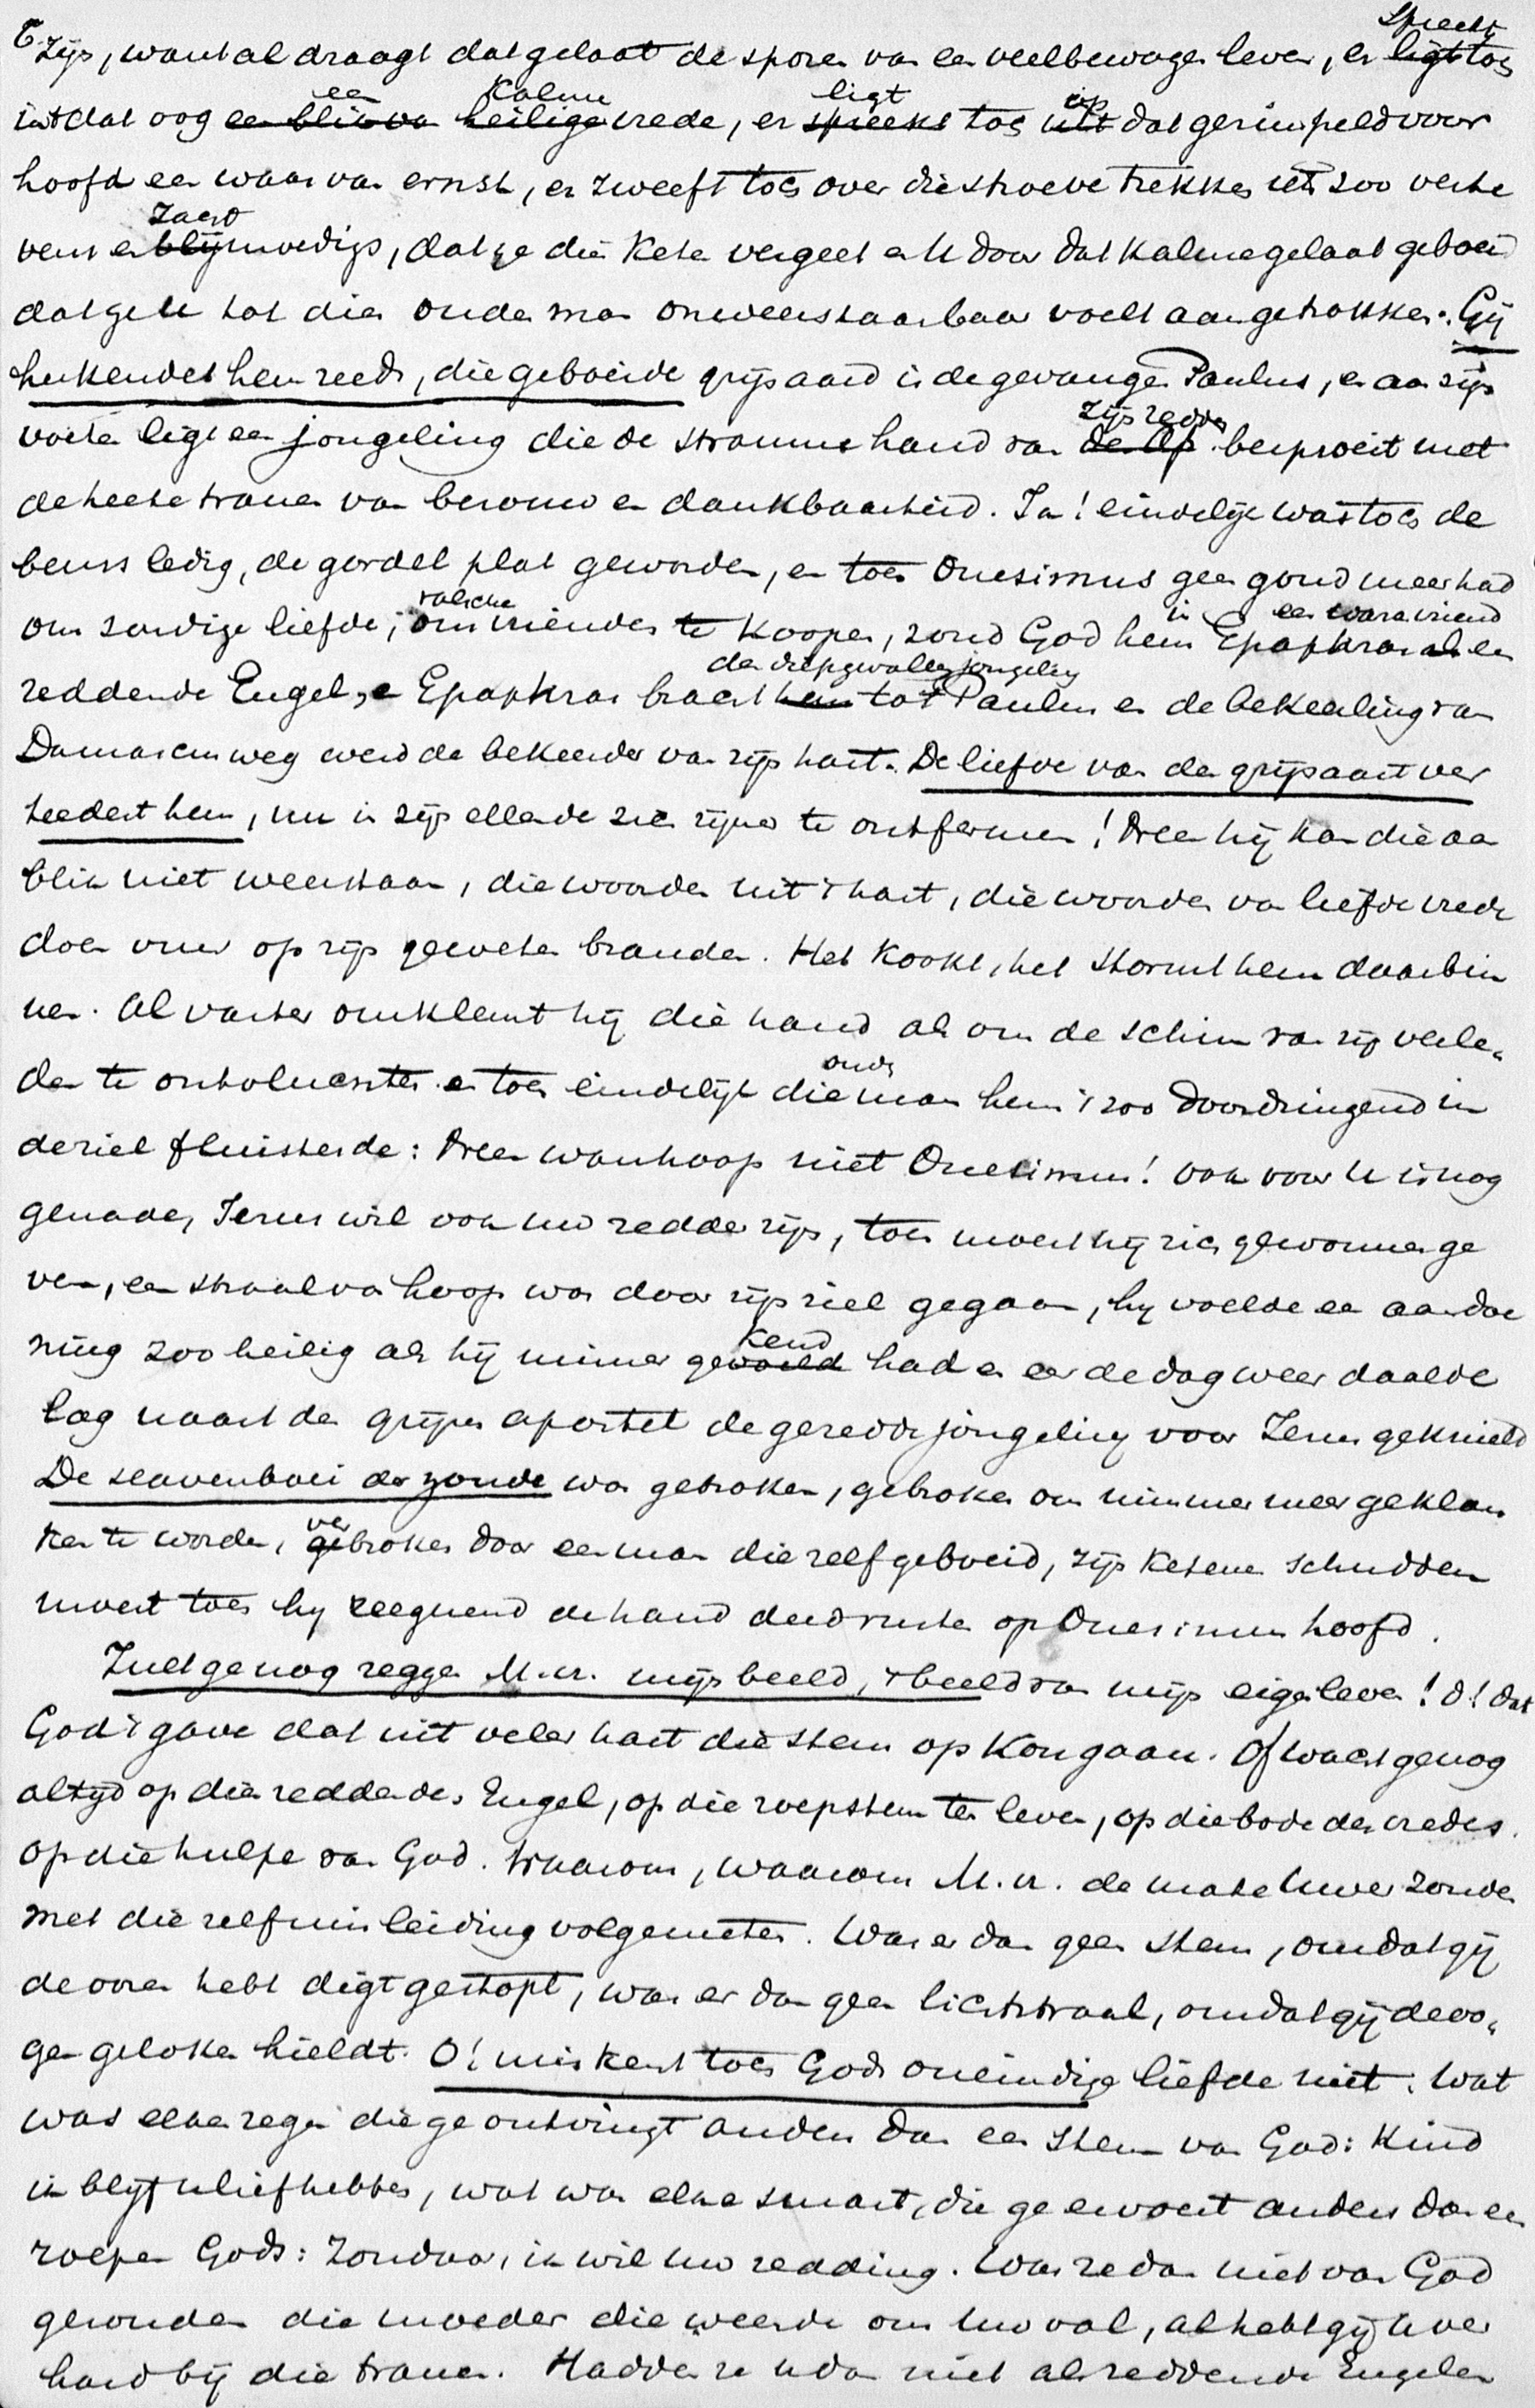 zijn, want al draagt dat gelaat de sporen van een veelbewogen leven, er spreekt toch
uit dat oog een kalme vrede, er ligt toch op dat gerimpeld voor
hoofd een waas van ernst, er zweeft toch over die stroeve trekken iets zoo verhe
vens en zachtmoedigs, dat ge die keten vergeet en U door dat kalme gelaat geboeid
dat ge U tot dien ouden man onweerstaanbaar voelt aangetrokken. Gij
herkendet hem reeds, die geboeide grijsaard is de gevangen Paulus, en aan zijn
voeten ligt een jongeling die de stramme hand van zijn redder besproeit met
de heete tranen van berouw en dankbaarheid. Ja! eindelijk was toch de
beurs ledig, de gordel plat geworden, en toen Onesimus geen goud meer had
om zondige liefde, om valsche vrienden te koopen, zond God hem in Epaphras een waren vriend een
reddende Engel, en Epaphras bracht den diepgevallen jongeling tot Paulus en de bekeerling van
Damascus weg werd de bekeerder van zijn hart. De liefde van den grijsaart ver
teedert hem, nu in zijn ellende zich zijner te ontfermen! Neen hij kan dien aan
blik niet weerstaan, die woorden uit 't hart, die woorden van liefde vrede
doen vuur op zijn geweten branden. Het kookt, het stormt hem daarbin
nen. Al vaster omklemt hij die hand als om de schim van zijn verle-
den te ontvluchten en toen eindelijk die oude man hem 't zoo doordringend in
de ziel fluisterde: Neen wanhoop niet Onesimus! ook voor U is nog
genade, Jezus wil ook uw redder zijn, toen moest hij zich gewonnen ge
ven, een straal van hoop was door zijn ziel gegaan, hij voelde een aandoe
ning zoo heilig als hij nimmer gekend had en eer de dag weer daalde
lag naast den grijzen apostel de geredde jongeling voor Jezus geknield
De slavenboei der zonde was gebroken, gebroken om nimmer meer geklon
ken te worden, verbroken door een man die zelf geboeid, zijn ketenen schudden
moest toen hij zeegnend de hand deed rusten op Onesimus hoofd.
Zult ge nog zeggen M.U. mijn beeld, 't beeld van mijn eigen leven! O! dat
God 't gave dat uit veler hart die stem op kon gaan. Of wacht ge nog
altijd op dien reddenden Engel, op die roepstem ten leven, op die bode des vredes
op die hulpe van God. Waarom, waarom M.U. de mate Uwer zonden
met die zelfmisleiding volgemeten. Was er dan geen stem, omdat gij
de ooren hebt digt gestopt, was er dan geen lichtstraal, omdat gij de oo-
gen geloken hieldt. O! miskent toch Gods oneindige liefde niet. Wat
was elke zegen die ge ontvingt anders dan een stem van God: Kind
ik blijf u liefhebben, wat was elke smart, die ge ervoert anders dan een
roepen Gods: Zondaar, ik wil uw redding. Was ze dan niet van God
gezonden die moeder die weende om uw val, al hebt gij U ver
hard bij die tranen. Hadden ze u dan niet als reddende Engelen